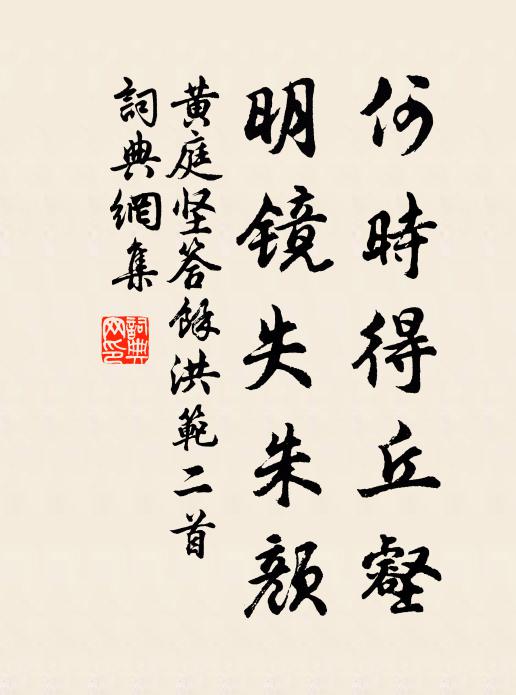 何時得丘壑
明镜失朱颜
黄庭坚答餘洪範二首
詞典網集
詞典網印